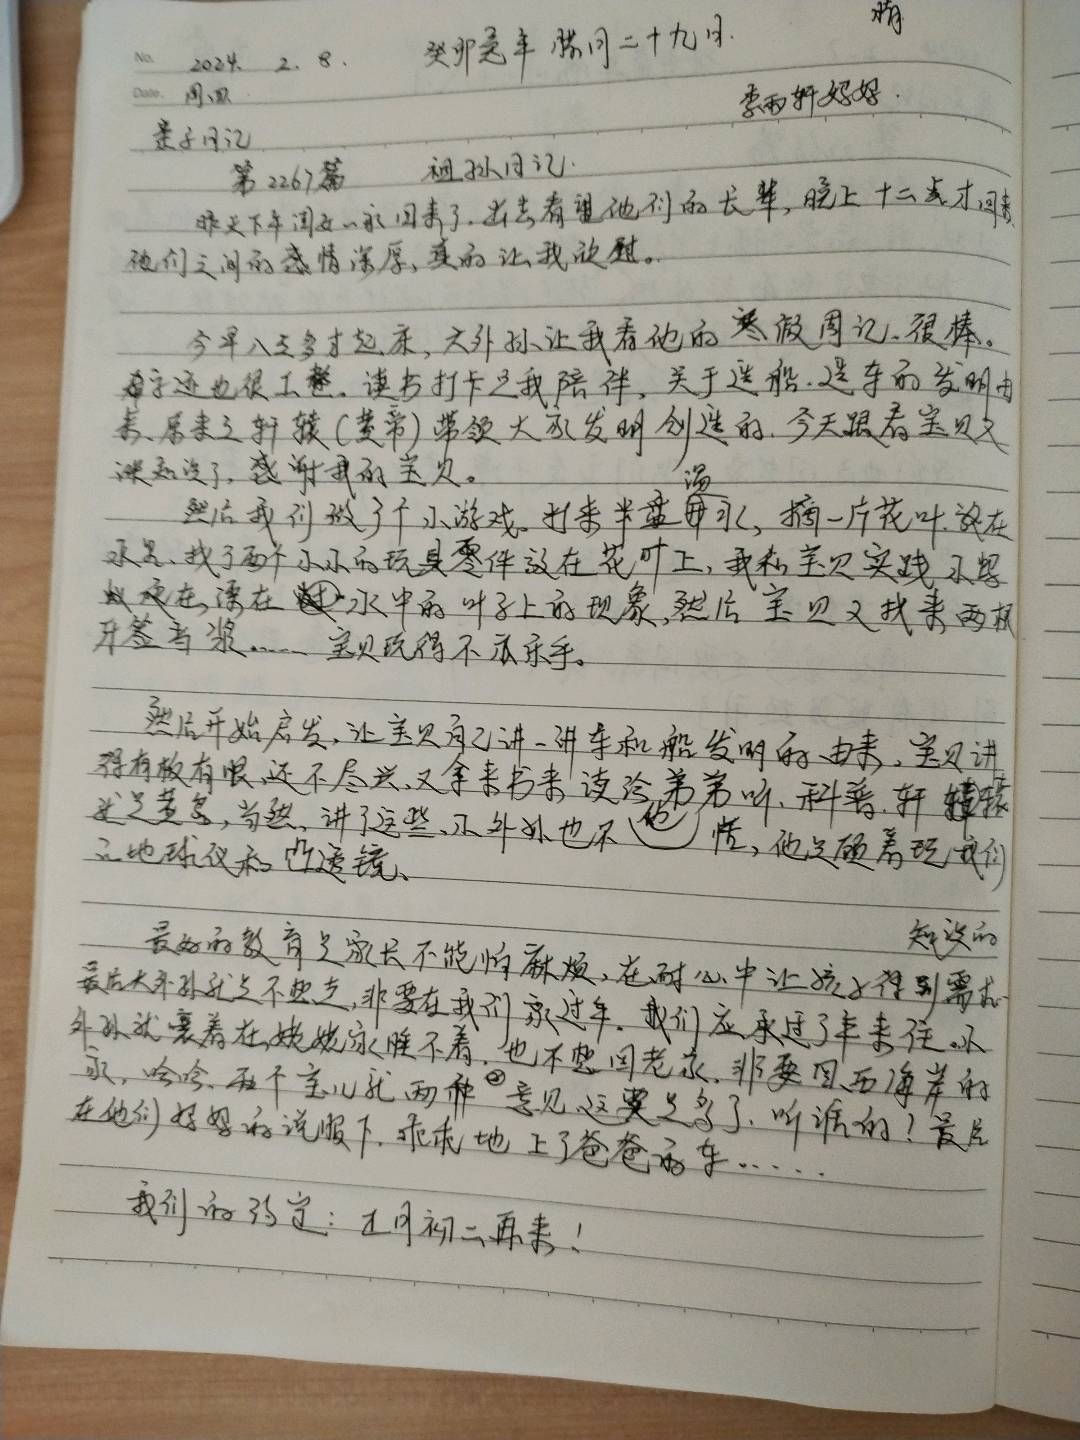 晴
No. 2024. 2. 8. 癸卯兔年 腊月二十九日.
Date. 周四 李雨轩姥姥.
亲子日记
第2267篇 祖孙日记.
昨天下午闺女一家回来了.出去看望他们的长辈,晚上十二点才回来
他们之间的感情深厚,真的让我欣慰。
今早八点多才起床,大外孙让我看他的寒假周记.很棒。
字迹也很工整。读书打卡是我陪伴,关于造船.造车的发明由
来、原来是轩辕(黄帝)带领大家发明创造的.今天跟着宝贝又
涨知识了,感谢我的宝贝。
然后我们做了个小游戏。打来半盆温水,摘一片花叶.放在
水里、找了两个小小的玩具零件放在花叶上,我和宝贝实践小蚂
蚁爬在,漂在水中的叶子上的现象,然后宝贝又找来两根
牙签当浆……宝贝玩得不亦乐乎。
然后开始启发,让宝贝自己讲一讲车和船发明的由来,宝贝讲
得有板有眼、还不尽兴、又拿来书来读给弟弟听、科普.轩辕
就是黄帝,当然、讲了这些、小外孙也不悟,他只顾着玩我们
的地球仪和凸透镜、
最好的教育是家长不能怕麻烦、在耐心中让孩子得到知识的需求
最后大外孙就是不想走,非要在我们家过年.我们应承过了年来住。小
外孙就嚷着在姥姥家睡不着.也不想回老家.非要回西海岸的
家,哈哈、两个宝儿就两种意见.这要是多了.听谁的!最后
在他们好好的说服下.乖乖地上了爸爸的车……
我们的约定:正月初二再来!